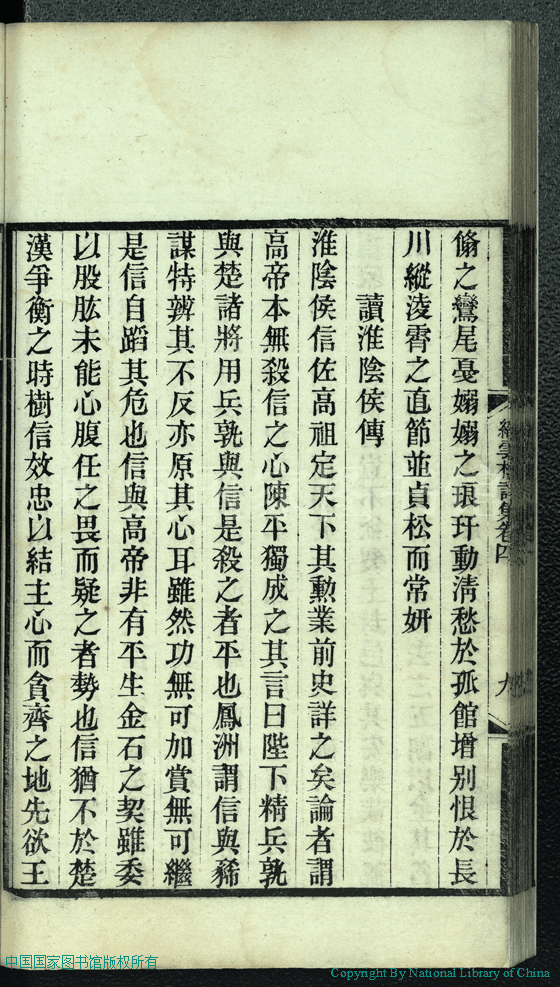 翛之鸞尾戞嫋嫋之琅玕動淸愁於孤館增別恨於長
川縱淩霄之直節並貞松而常妍
讀淮陰侯傳
淮陰侯信佐高祖定天下其勳業前史詳之矣論者謂
高帝本無殺信之心陳平獨成之其言曰陛下精兵孰
與楚諸將用兵孰與信是殺之者平也鳳洲謂信與豨
謀特辨其不反亦原其心耳雖然功無可加賞無可繼
是信自蹈其危也信與高帝非有平生金石之契雖委
以股肱未能心腹任之畏而疑之者勢也信猶不於楚
漢爭衡之時樹信效忠以結主心而貪齊之地先欲王
雲樓詩集卷四
九
中国国家图书馆版权所有
Copyright By National Library of China